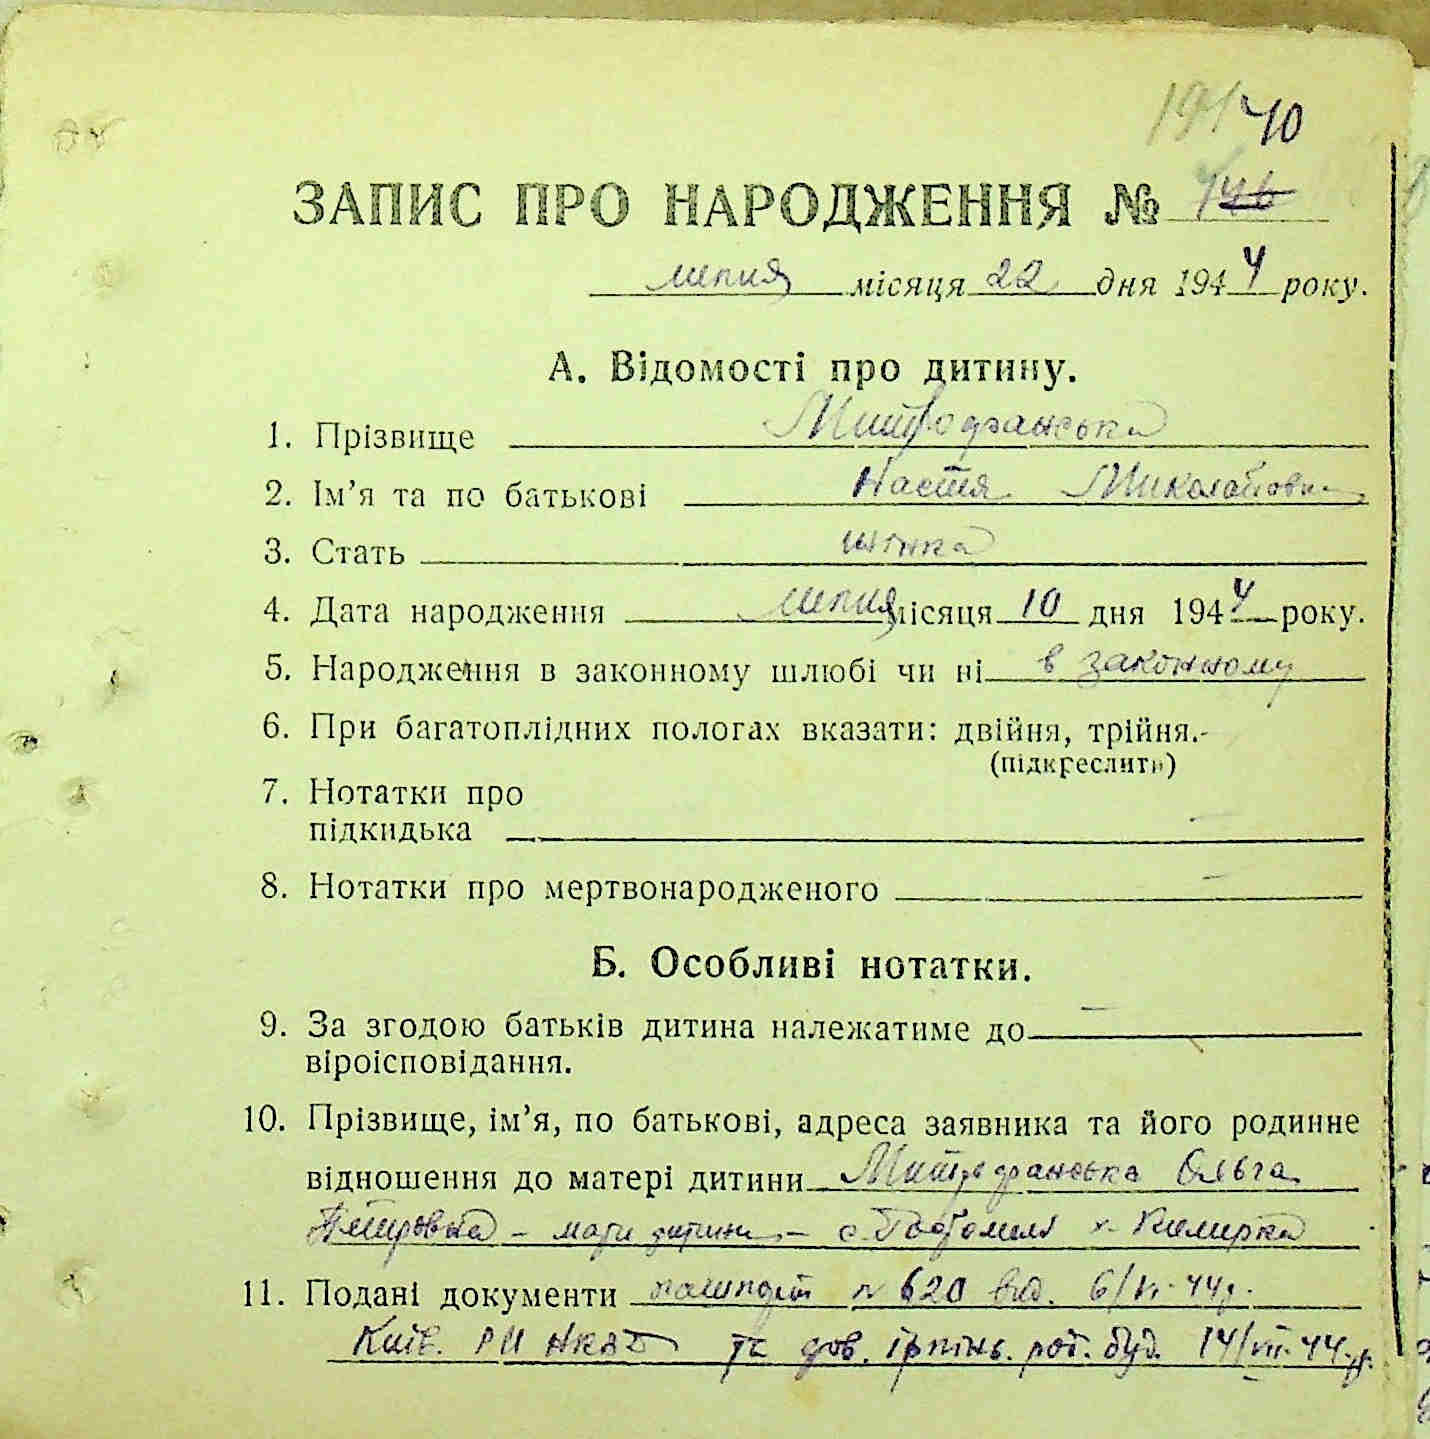 40
ЗАПИС ПРО НАРОДЖЕННЯ № 446
липня місяця 22 дня 1944 року.
А. Відомості про дитину.
1. Прізвище Митрофанська
2. Ім'я та по батькові Настя Миколаївна
3. Стать жінка
4. Дата народження липня місяця 10 дня 1944 року.
5. Народження в законному шлюбі чи ні в законному
6. При багатоплідних пологах вказати: двійня, трійня.-
(підкреслити)
7. Нотатки про
підкидька
8. Нотатки про мертвонародженого —
Б. Особливі нотатки.
9. За згодою батьків дитина належатиме до —
віроісповідання.
10. Прізвище, ім'я, по батькові, адреса заявника та його родинне
відношення до матері дитини Митрофанська Ольга
Петровна - мати дитини - с. х.
11. Подані документи пашпорт № 620 вид. 6/VI-44р.
Київ. РИ НКВД та дов. ірпінь. пот. буд. 14/VII-44 р.